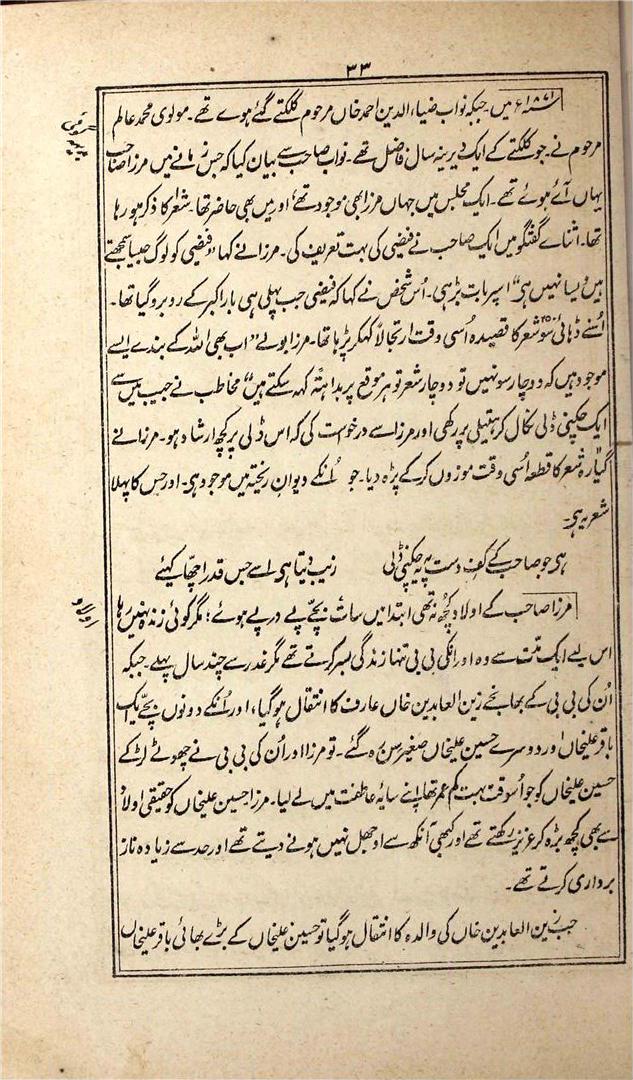 ۳۳
۱۸۷۱ء میں جبکہ نواب ضیاء الدین احمد خاں مرحوم کلکتے گئے ہوے تھے۔ مولوی محمد عالم
مرحوم نے۔ جو کلکتے کے ایک دیرینہ سال فاضل تھے۔ نواب صاحب سے بیان کیا کہ جس زمانے میں مرزا صاحب
یہاں آئے ہوئے تھے۔ ایک مجلس میں جہاں مرزا بھی موجود تھے اور میں بھی حاضر تھا۔ شعرا کا ذکر ہو رہا
تھا۔ اثنائے گفتگو میں ایک صاحب نے فیضی کی بہت تعریف کی۔ مرزا نے کہا "فیضی کو لوگ جیسا سمجھتے
ہیں ویسا نہیں ہی" اسپر بات بڑہی۔ اُس شخص نے کہا کہ فیضی جب پہلی ہی بار اکبر کے روبرو گیا تھا۔
اُسنے ڈہائی سو ۲۵۰ شعر کا قصیدہ اُسی وقت ارتجالاً کہکر پڑہا تھا۔ مرزا بولے "اب بھی اللہ کے بندے ایسے
موجود ہیں کہ دو چار سو نہیں تو دو چار شعر تو ہر موقع پر بداہتہً کہہ سکتے ہیں" مخاطب نے جیب میں سے
ایک چکنی ڈلی نکال کر ہتیلی پر رکھی اور مرزا سے درخواست کی کہ اس ڈلی پر کچھ ارشاد ہو۔ مرزا نے
گیارہ شعر کا قطعہ اُسی وقت موزوں کر کے پڑہ دیا۔ جو اُنکے دیوان ریختہ میں موجود ہی۔ اور جس کا پہلا
شعر یہ ہی۔
ہی جو صاحب کے کف دست پہ یہ چکنی ڈلی زیب دیتا ہی اسے جس قدر اچھا کہئے
مرزا صاحب کے اولاد کچھ نہ تھی ابتدا میں سات بچّے پے در پے ہوئے؛ مگر کوئی زندہ نہیں رہا
اس لیے ایک مدّت سے وہ اور انکی بی بی تنہا زندگی بسر کرتے تھے مگر غدر سے چند سال پہلے۔ جبکہ
اُن کی بی بی کے بھانجے زین العابدین خاں عارف کا انتقال ہو گیا، اور اُنکے دونوں بچّے ایک
باقر علیخاں اور دوسرے حسین علیخاں صغیر سن رہ گئے۔ تو مرزا اور اُن کی بی بی نے چھوٹے لڑکے
حسین علیخاں کو جو اُسوقت بہت کم عمر تھا اپنے سایۂ عاطفت میں لے لیا۔ مرزا حسین علیخاں کو حقیقی اولاد
سے بھی کچھ بڑہ کر عزیز رکھتے تھے اور کبھی آنکھ سے اوجھل نہیں ہونے دیتے تھے اور حد سے زیادہ ناز
برداری کرتے تھے۔
جب زین العابدین خاں کی والدہ کا انتقال ہو گیا تو حسین علیخاں کے بڑے بھائی باقر علیخاں